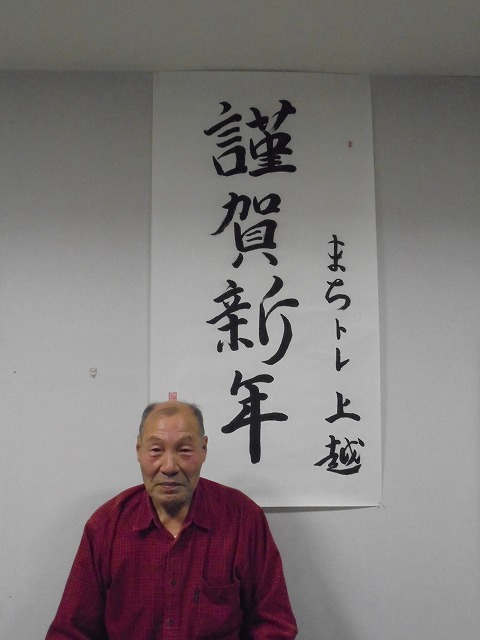 謹賀新年
まちトレ上越